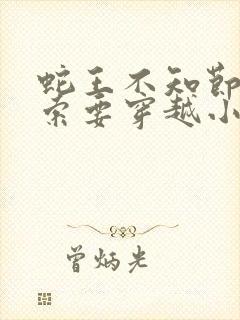 蛇王不知节
索要穿越小
曾炳光